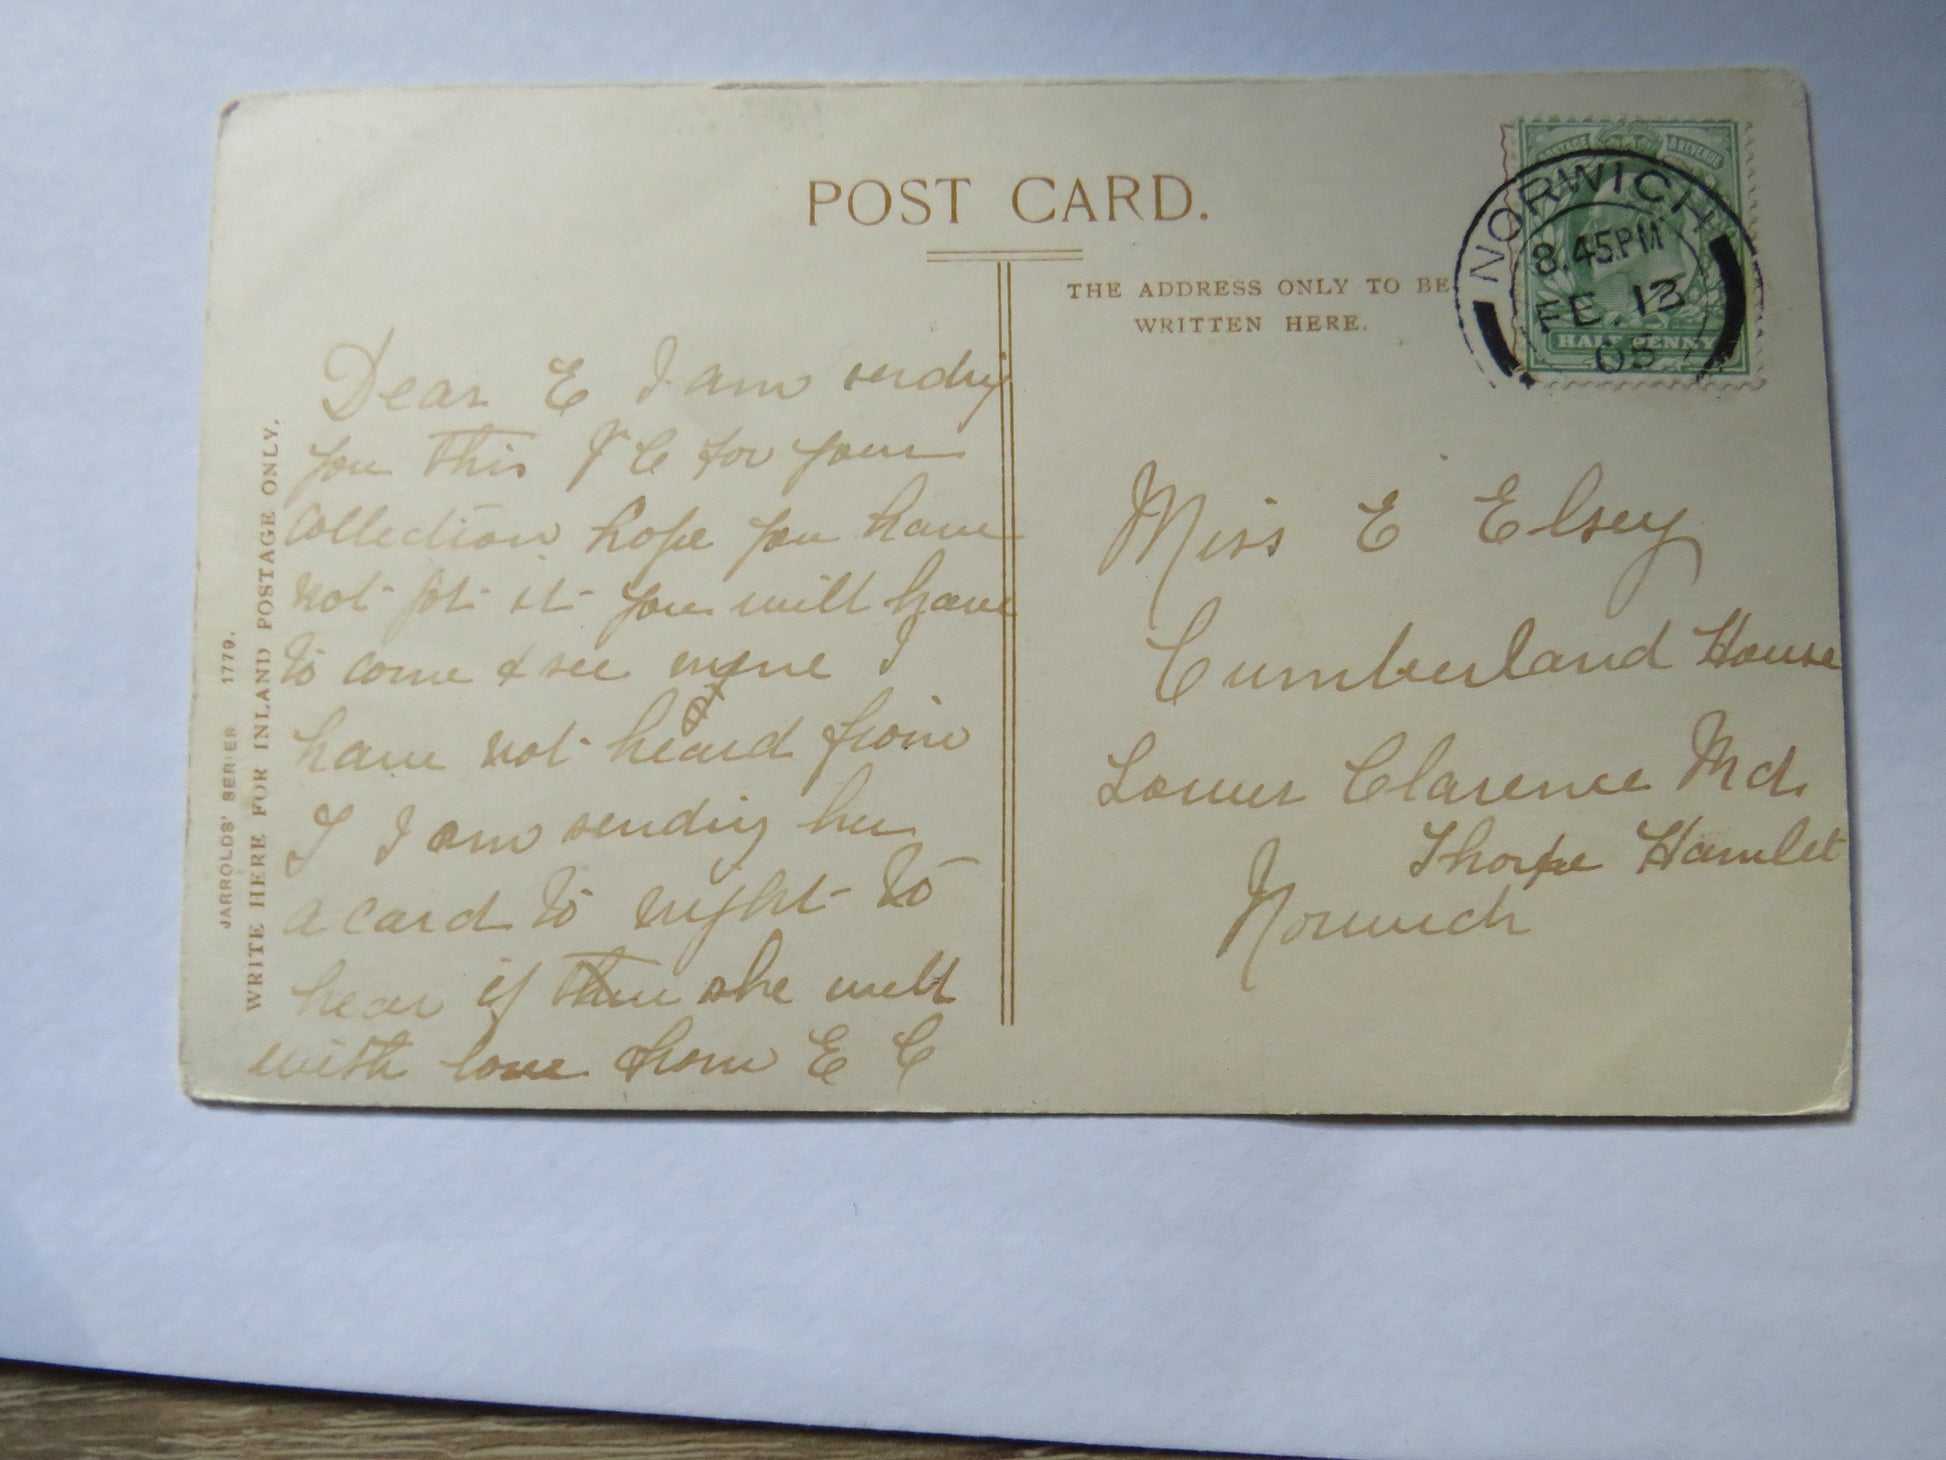 POST CARD.
THE ADDRESS ONLY TO BE
WRITTEN HERE.
POSTAGE & REVENUE
NORWICH
8.45PM
FE. 13
05
HALF PENNY
JARROLDS' SERIES 1779.
WRITE HERE FOR INLAND POSTAGE ONLY.
Dear E I am sending
you this P C for your
collection hope you have
not got it you will have
to come & see mine I
have not heard from
I I am sending her
a card to night to
hear if she will
with love from E C
Miss E Elsey
Cumberland House
Lower Clarence Rd.
Thorpe Hamlet
Norwich